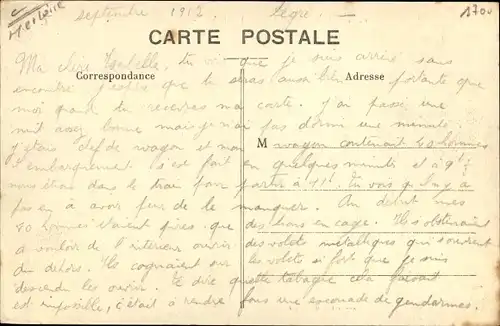 septembre 1912 Segré. 1700
CARTE POSTALE
Ma chère Isabelle, tu vois que je suis arrivé sans
Correspondance Adresse
encontre j'espère que tu seras aussi bien portante que
moi quand tu recevras ma carte. J'ai passé une
nuit assez bonne mais je n'ai pas dormi une minute
j'étais chef de wagon et mon M wagon contenant 40 hommes
l'embarquement s'est fait en quelques minutes et à 9h ½
nous étions dans le train pour partir à 11h. Tu vois qu'il n'y a
pas eu à avoir peur de le manquer. Au début mes
40 hommes étaient pires que des lions en cage. Ils s'obstinaient
à vouloir de l'intérieur ouvrir des volets métalliques qui s'ouvrent
du dehors. Ils cognaient sur les volets si fort que je suis
descendu les ouvrir. Te dire quel tabage cela faisait
est impossible, c'était à rendre fous une escouade de gendarmes.